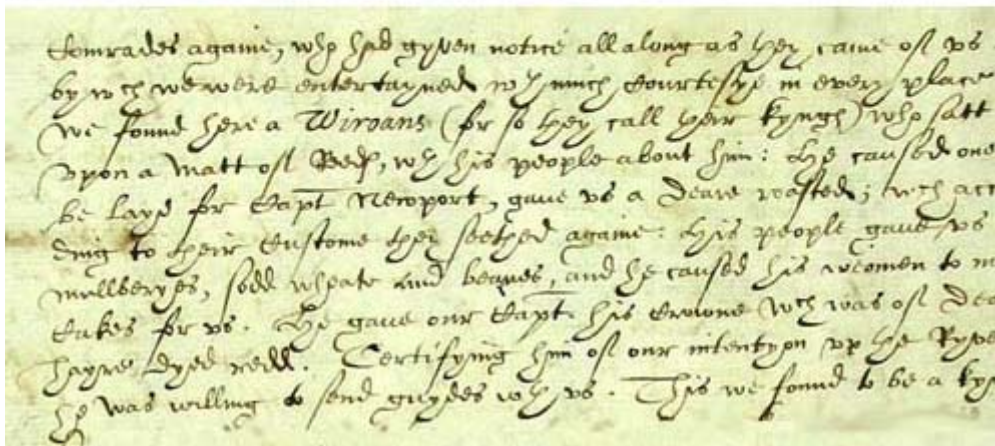 Comrades againe, who had gyven notice all along as they came of vs
by wch we were entertayned wth much Courtesye in every place
We found here a Wiroans (for so they call their kyngs) who satt
vpon a matt of Reeds, wth his people about him: He caused one
be layd for Capt Newport, gaue vs a Deare roasted; wch acc
ding to their Custome they seethed againe: His people gaue vs
mullberyes, sodd wheate and beanes, and he caused his weomen to m
Cakes for vs. He gaue our Capt. his Crowne wch was of Dea
hayre dyed redd. Certifying him of our intentyon vp the Ryve
he was willing to send guydes wth vs. This we found to be a kyn